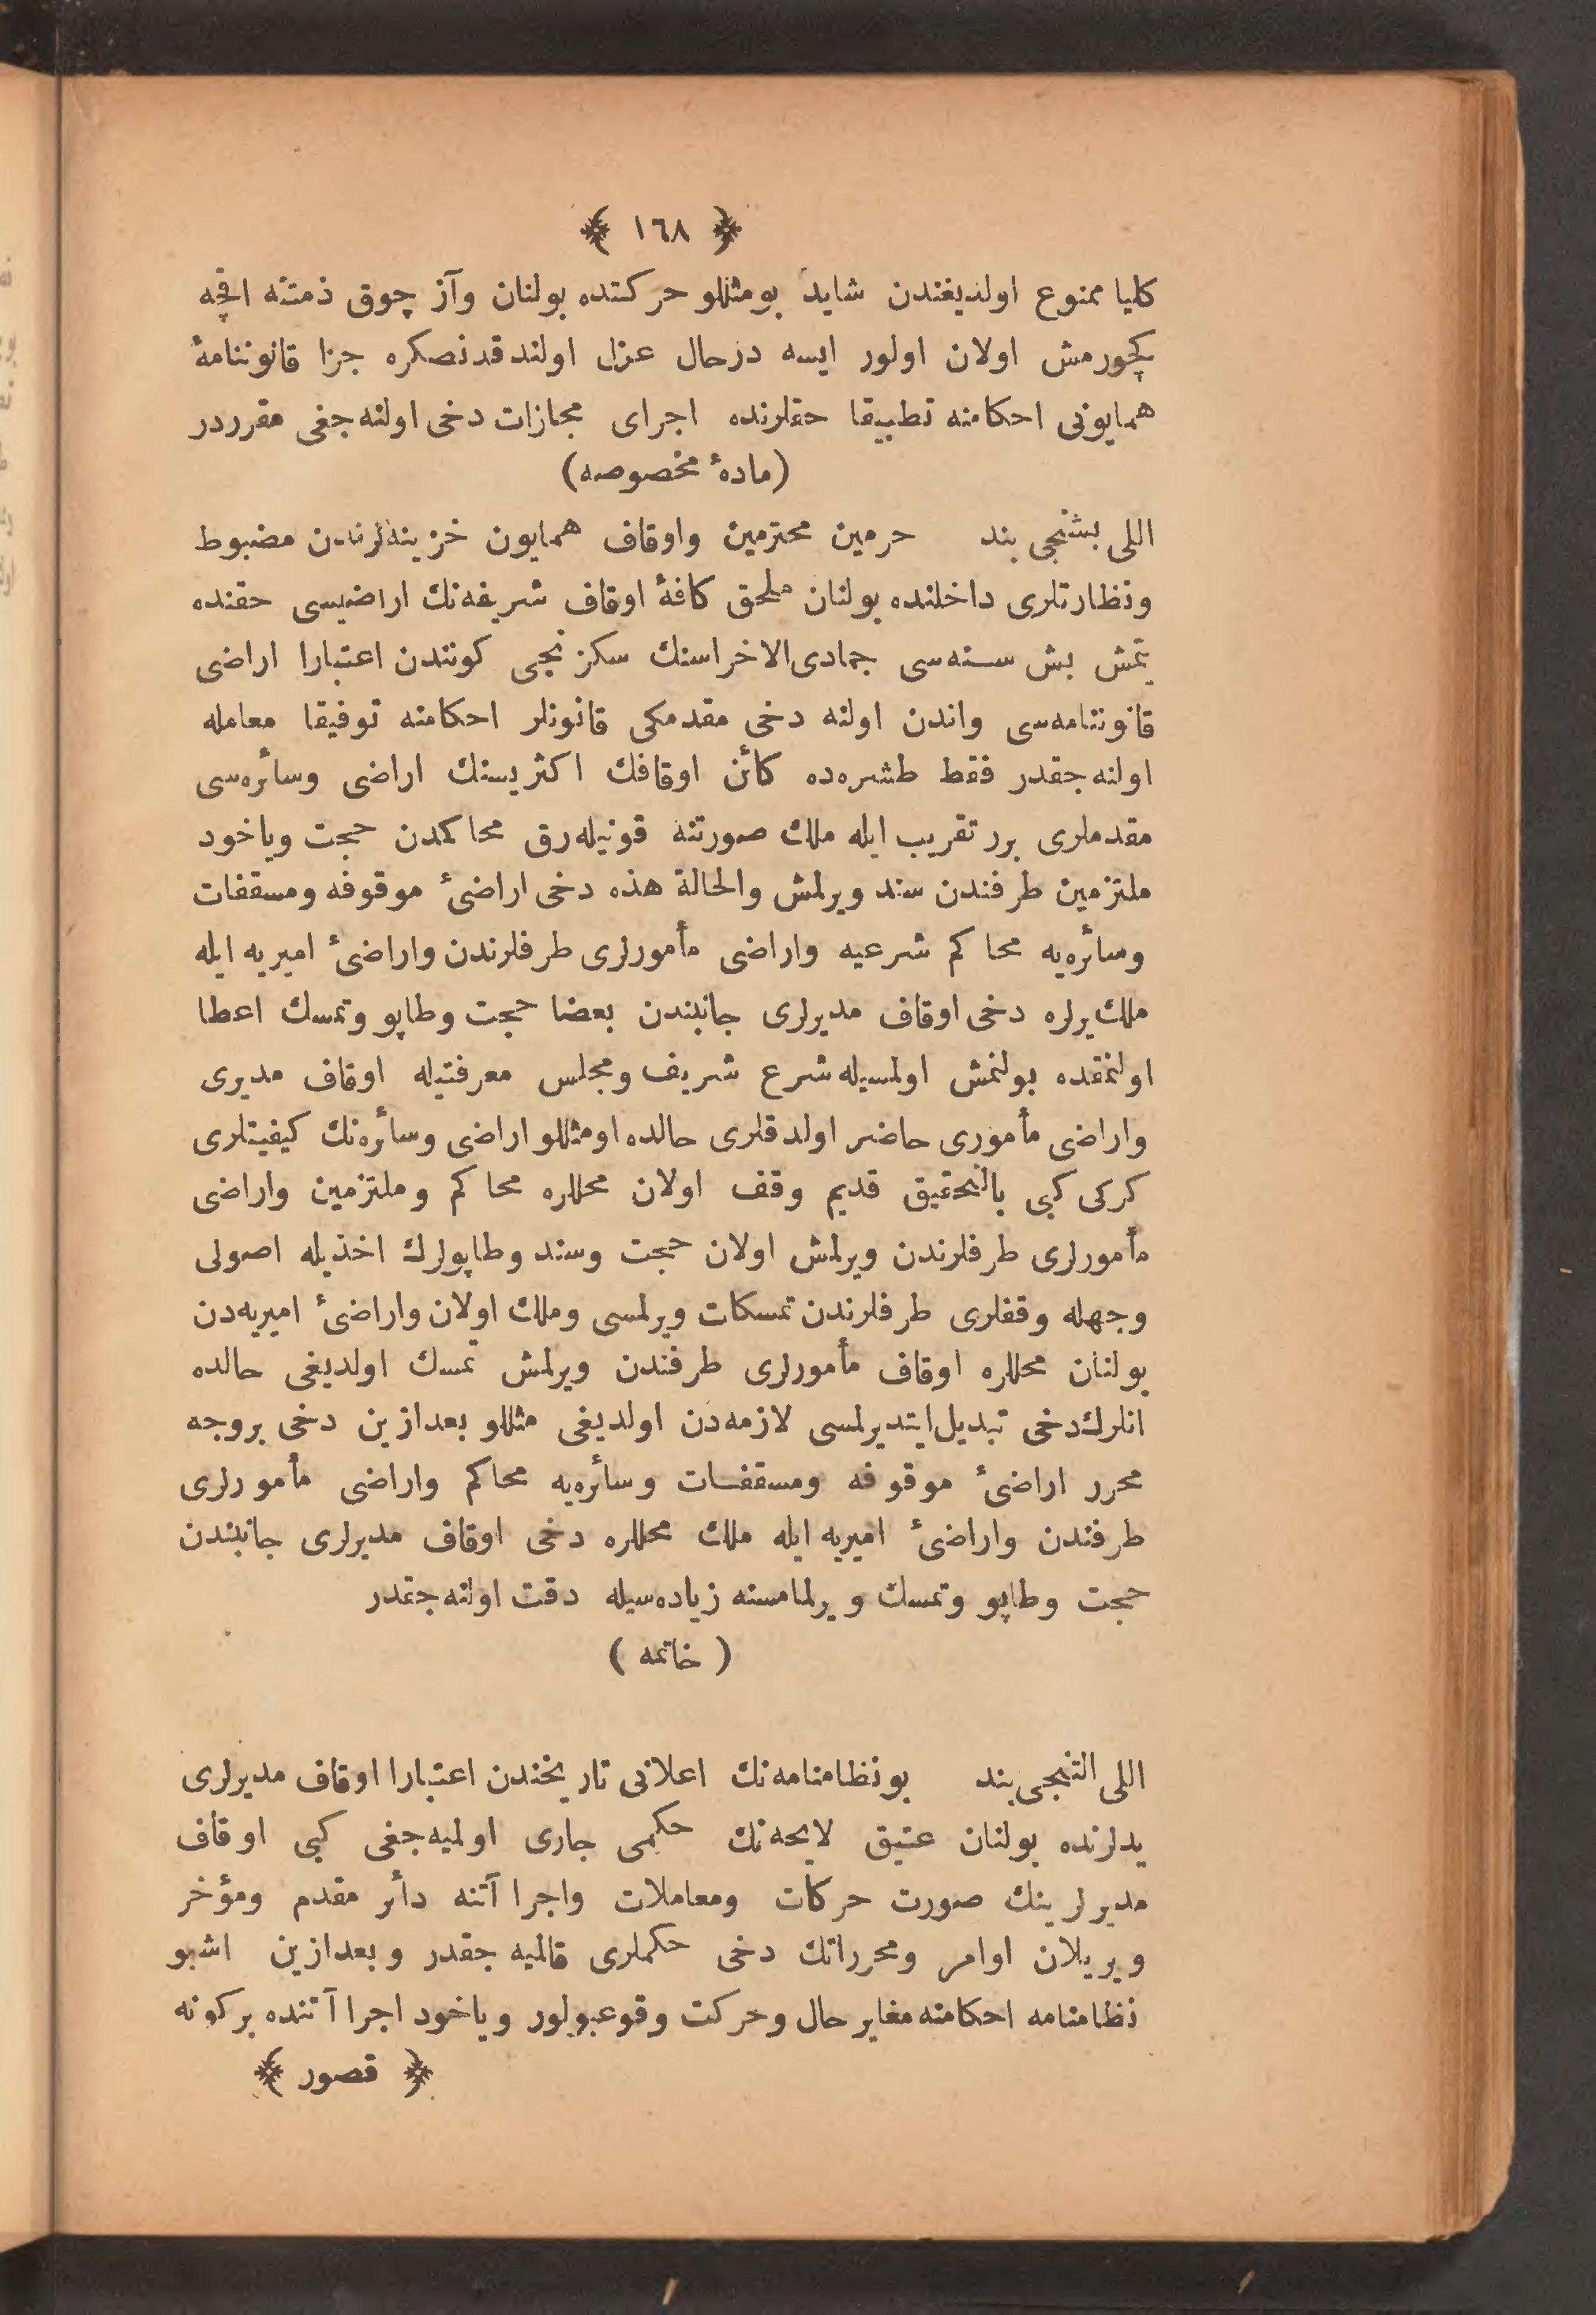 ﴿ ١٦٨ ﴾
كليا ممنوع اولديغندن شايد بومثللو حركتده بولنان وآز چوق ذمتنه اقچه
كچورمش اولان اولور ايسه درحال عزل اولندقدنصكره جزا قانوننامهٔ
همايونى احكامنه تطبيقا حقلرنده اجراى مجازات دخى اولنه‌جغى مقرردر
(مادهٔ مخصوصه)
اللى بشنجى بند حرمين محترمين واوقاف همايون خزينه‌لرندن مضبوط
ونظارتلرى داخلنده بولنان ملحق كافهٔ اوقاف شريفه‌نك اراضيسى حقنده
يتمش بش سنه‌سى جمادى‌الاخراسنك سكزنجى كونندن اعتبارا اراضى
قانوننامه‌سى واندن اولنه دخى مقدمكى قانونلر احكامنه توفيقا معامله
اولنه‌جقدر فقط طشره‌ده كائن اوقافك اكثريسنك اراضى وسائره‌سى
مقدملرى برر تقريب ايله ملك صورتنه قونيله‌رق محاكمدن حجت وياخود
ملتزمين طرفندن سند ويرلمش والحالة هذه دخى اراضئ موقوفه ومسقفات
وسائره‌يه محاكم شرعيه واراضى مأمورلرى طرفلرندن واراضئ اميريه ايله
ملك يرلره دخى اوقاف مديرلرى جانبندن بعضا حجت وطاپو وتمسك اعطا
اولنمقده بولنمش اولمسيله شرع شريف ومجلس معرفتيله اوقاف مديرى
واراضى مأمورى حاضر اولدقلرى حالده اومثللو اراضى وسائره‌نك كيفيتلرى
كركى كبى بالتحقيق قديم وقف اولان محللره محاكم وملتزمين واراضى
مأمورلرى طرفلرندن ويرلمش اولان حجت وسند وطاپولرك اخذيله اصولى
وجهله وقفلرى طرفلرندن تمسكات ويرلمسى وملك اولان واراضئ اميريه‌دن
بولنان محللره اوقاف مأمورلرى طرفندن ويرلمش تمسك اولديغى حالده
انلرك دخى تبديل ايتديرلمسى لازمه‌دن اولديغى مثللو بعدازين دخى بروجه
محرر اراضئ موقوفه ومسقفات وسائره‌يه محاكم واراضى مأمورلرى
طرفندن واراضئ اميريه ايله ملك محللره دخى اوقاف مديرلرى جانبندن
حجت وطاپو وتمسك ويرلمامسنه زياده‌سيله دقت اولنه‌جقدر
( خاتمه )
اللى التنجى بند بونظامنامه‌نك اعلانى تاريخندن اعتبارا اوقاف مديرلرى
يدلرنده بولنان عتيق لايحه‌نك حكمى جارى اولميه‌جغى كبى اوقاف
مديرلرينك صورت حركات ومعاملات واجراآتنه دأئر مقدم ومؤخر
ويريلان اوامر ومحرراتك دخى حكملرى قالميه‌جقدر وبعدازين اشبو
نظامنامه احكامنه مغاير حال وحركت وقوعبولور وياخود اجراآتنده بركونه
﴿ قصور ﴾